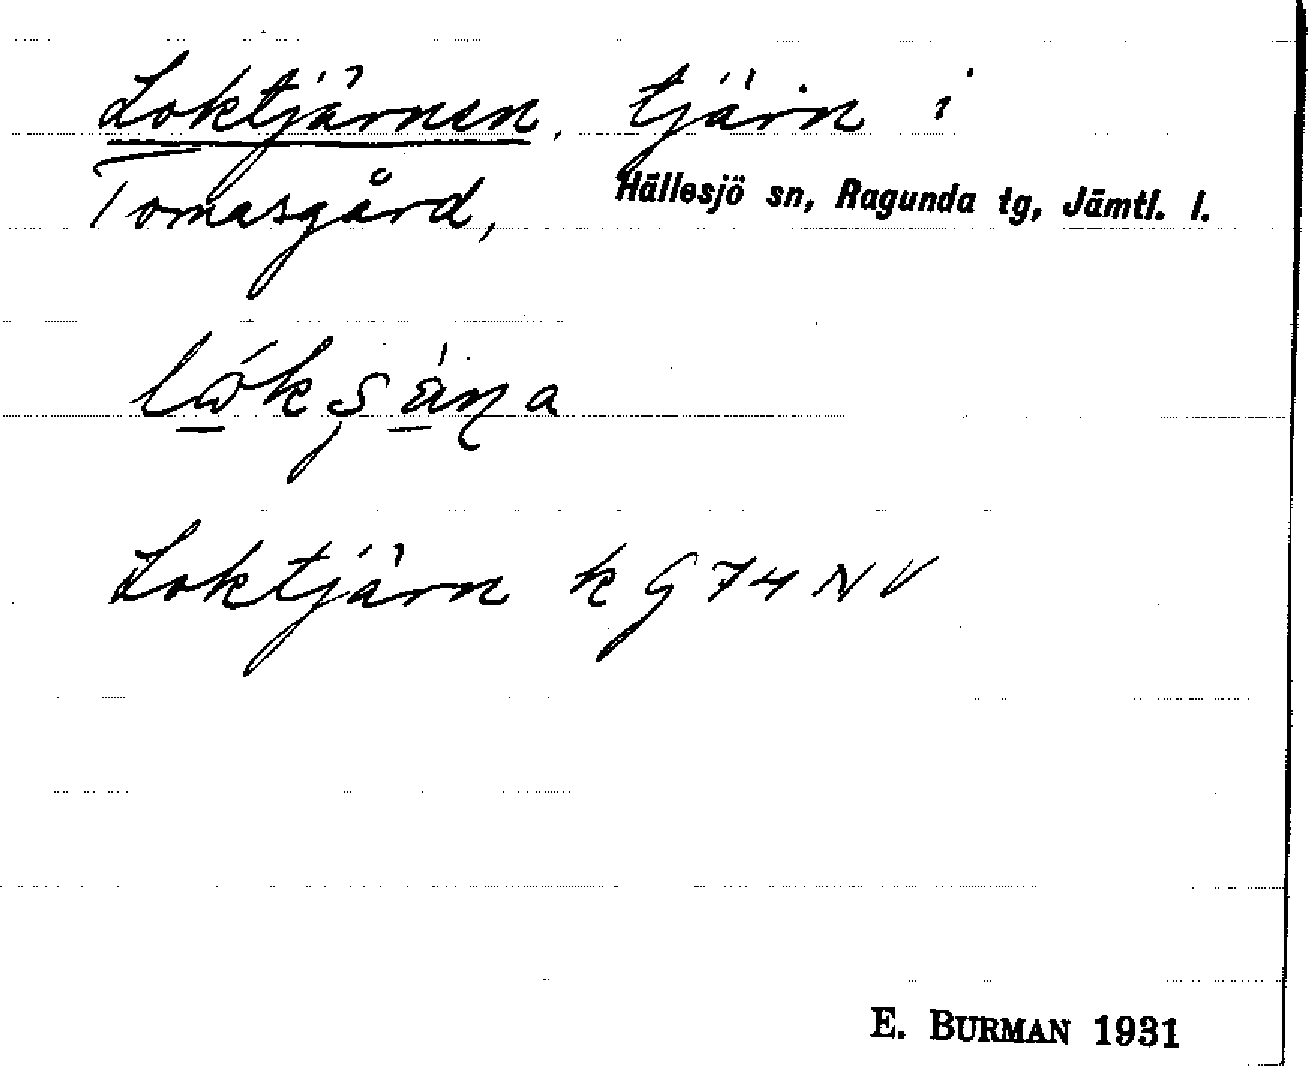 Loktjärnen, tjärn i
Tomasgård, Hällesjö sn, Ragunda tg, Jämtl. l.
Loktjärn k G 74 NV
E. BURMAN 1931